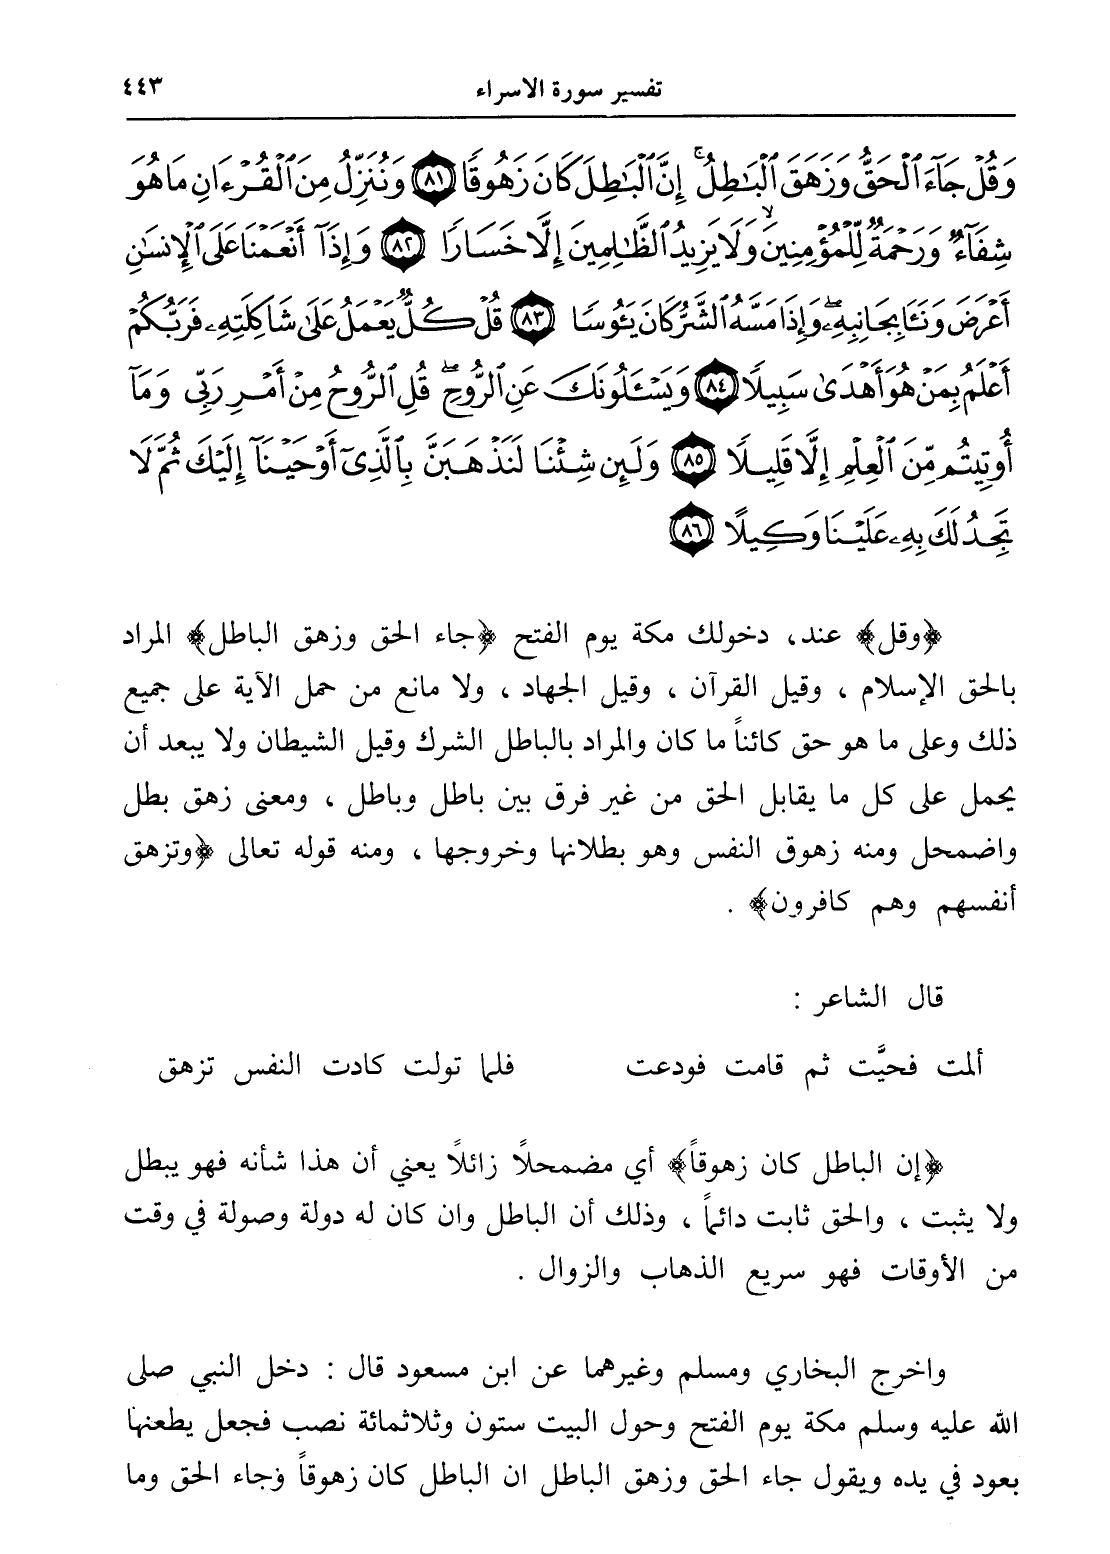 تفسير سورة الاسراء ٤٤٣
وَقُلْ جَآءَ ٱلْحَقُّ وَزَهَقَ ٱلْبَٰطِلُ ۚ إِنَّ ٱلْبَٰطِلَ كَانَ زَهُوقًا ٨١ وَنُنَزِّلُ مِنَ ٱلْقُرْءَانِ مَا هُوَ
شِفَآءٌ وَرَحْمَةٌ لِّلْمُؤْمِنِينَ ۙ وَلَا يَزِيدُ ٱلظَّٰلِمِينَ إِلَّا خَسَارًا ٨٢ وَإِذَآ أَنْعَمْنَا عَلَى ٱلْإِنسَٰنِ
أَعْرَضَ وَنَـَٔا بِجَانِبِهِۦ ۖ وَإِذَا مَسَّهُ ٱلشَّرُّ كَانَ يَـُٔوسًا ٨٣ قُلْ كُلٌّ يَعْمَلُ عَلَىٰ شَاكِلَتِهِۦ فَرَبُّكُمْ
أَعْلَمُ بِمَنْ هُوَ أَهْدَىٰ سَبِيلًا ٨٤ وَيَسْـَٔلُونَكَ عَنِ ٱلرُّوحِ ۖ قُلِ ٱلرُّوحُ مِنْ أَمْرِ رَبِّى وَمَآ
أُوتِيتُم مِّنَ ٱلْعِلْمِ إِلَّا قَلِيلًا ٨٥ وَلَئِن شِئْنَا لَنَذْهَبَنَّ بِٱلَّذِىٓ أَوْحَيْنَآ إِلَيْكَ ثُمَّ لَا
تَجِدُ لَكَ بِهِۦ عَلَيْنَا وَكِيلًا ٨٦
﴿وقل﴾ عند، دخولك مكة يوم الفتح ﴿جاء الحق وزهق الباطل﴾ المراد
بالحق الإسلام ، وقيل القرآن ، وقيل الجهاد ، ولا مانع من حمل الآية على جميع
ذلك وعلى ما هو حق كائناً ما كان والمراد بالباطل الشرك وقيل الشيطان ولا يبعد أن
يحمل على كل ما يقابل الحق من غير فرق بين باطل وباطل ، ومعنى زهق بطل
واضمحل ومنه زهوق النفس وهو بطلانها وخروجها ، ومنه قوله تعالى ﴿وتزهق
أنفسهم وهم كافرون﴾ .
قال الشاعر :
ألمت فحيَّت ثم قامت فودعت فلما تولت كادت النفس تزهق
﴿إن الباطل كان زهوقاً﴾ أي مضمحلاً زائلاً يعني أن هذا شأنه فهو يبطل
ولا يثبت ، والحق ثابت دائماً ، وذلك أن الباطل وان كان له دولة وصولة في وقت
من الأوقات فهو سريع الذهاب والزوال .
واخرج البخاري ومسلم وغيرهما عن ابن مسعود قال : دخل النبي صلى
الله عليه وسلم مكة يوم الفتح وحول البيت ستون وثلاثمائة نصب فجعل يطعنها
بعود في يده ويقول جاء الحق وزهق الباطل ان الباطل كان زهوقاً وجاء الحق وما